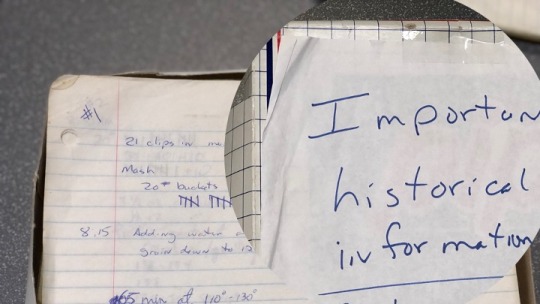 #1
21 clips in
Mash
20# buckets
8.15 Adding water
grain down to 12
65 min at 110°-130°
Importan
historical
information